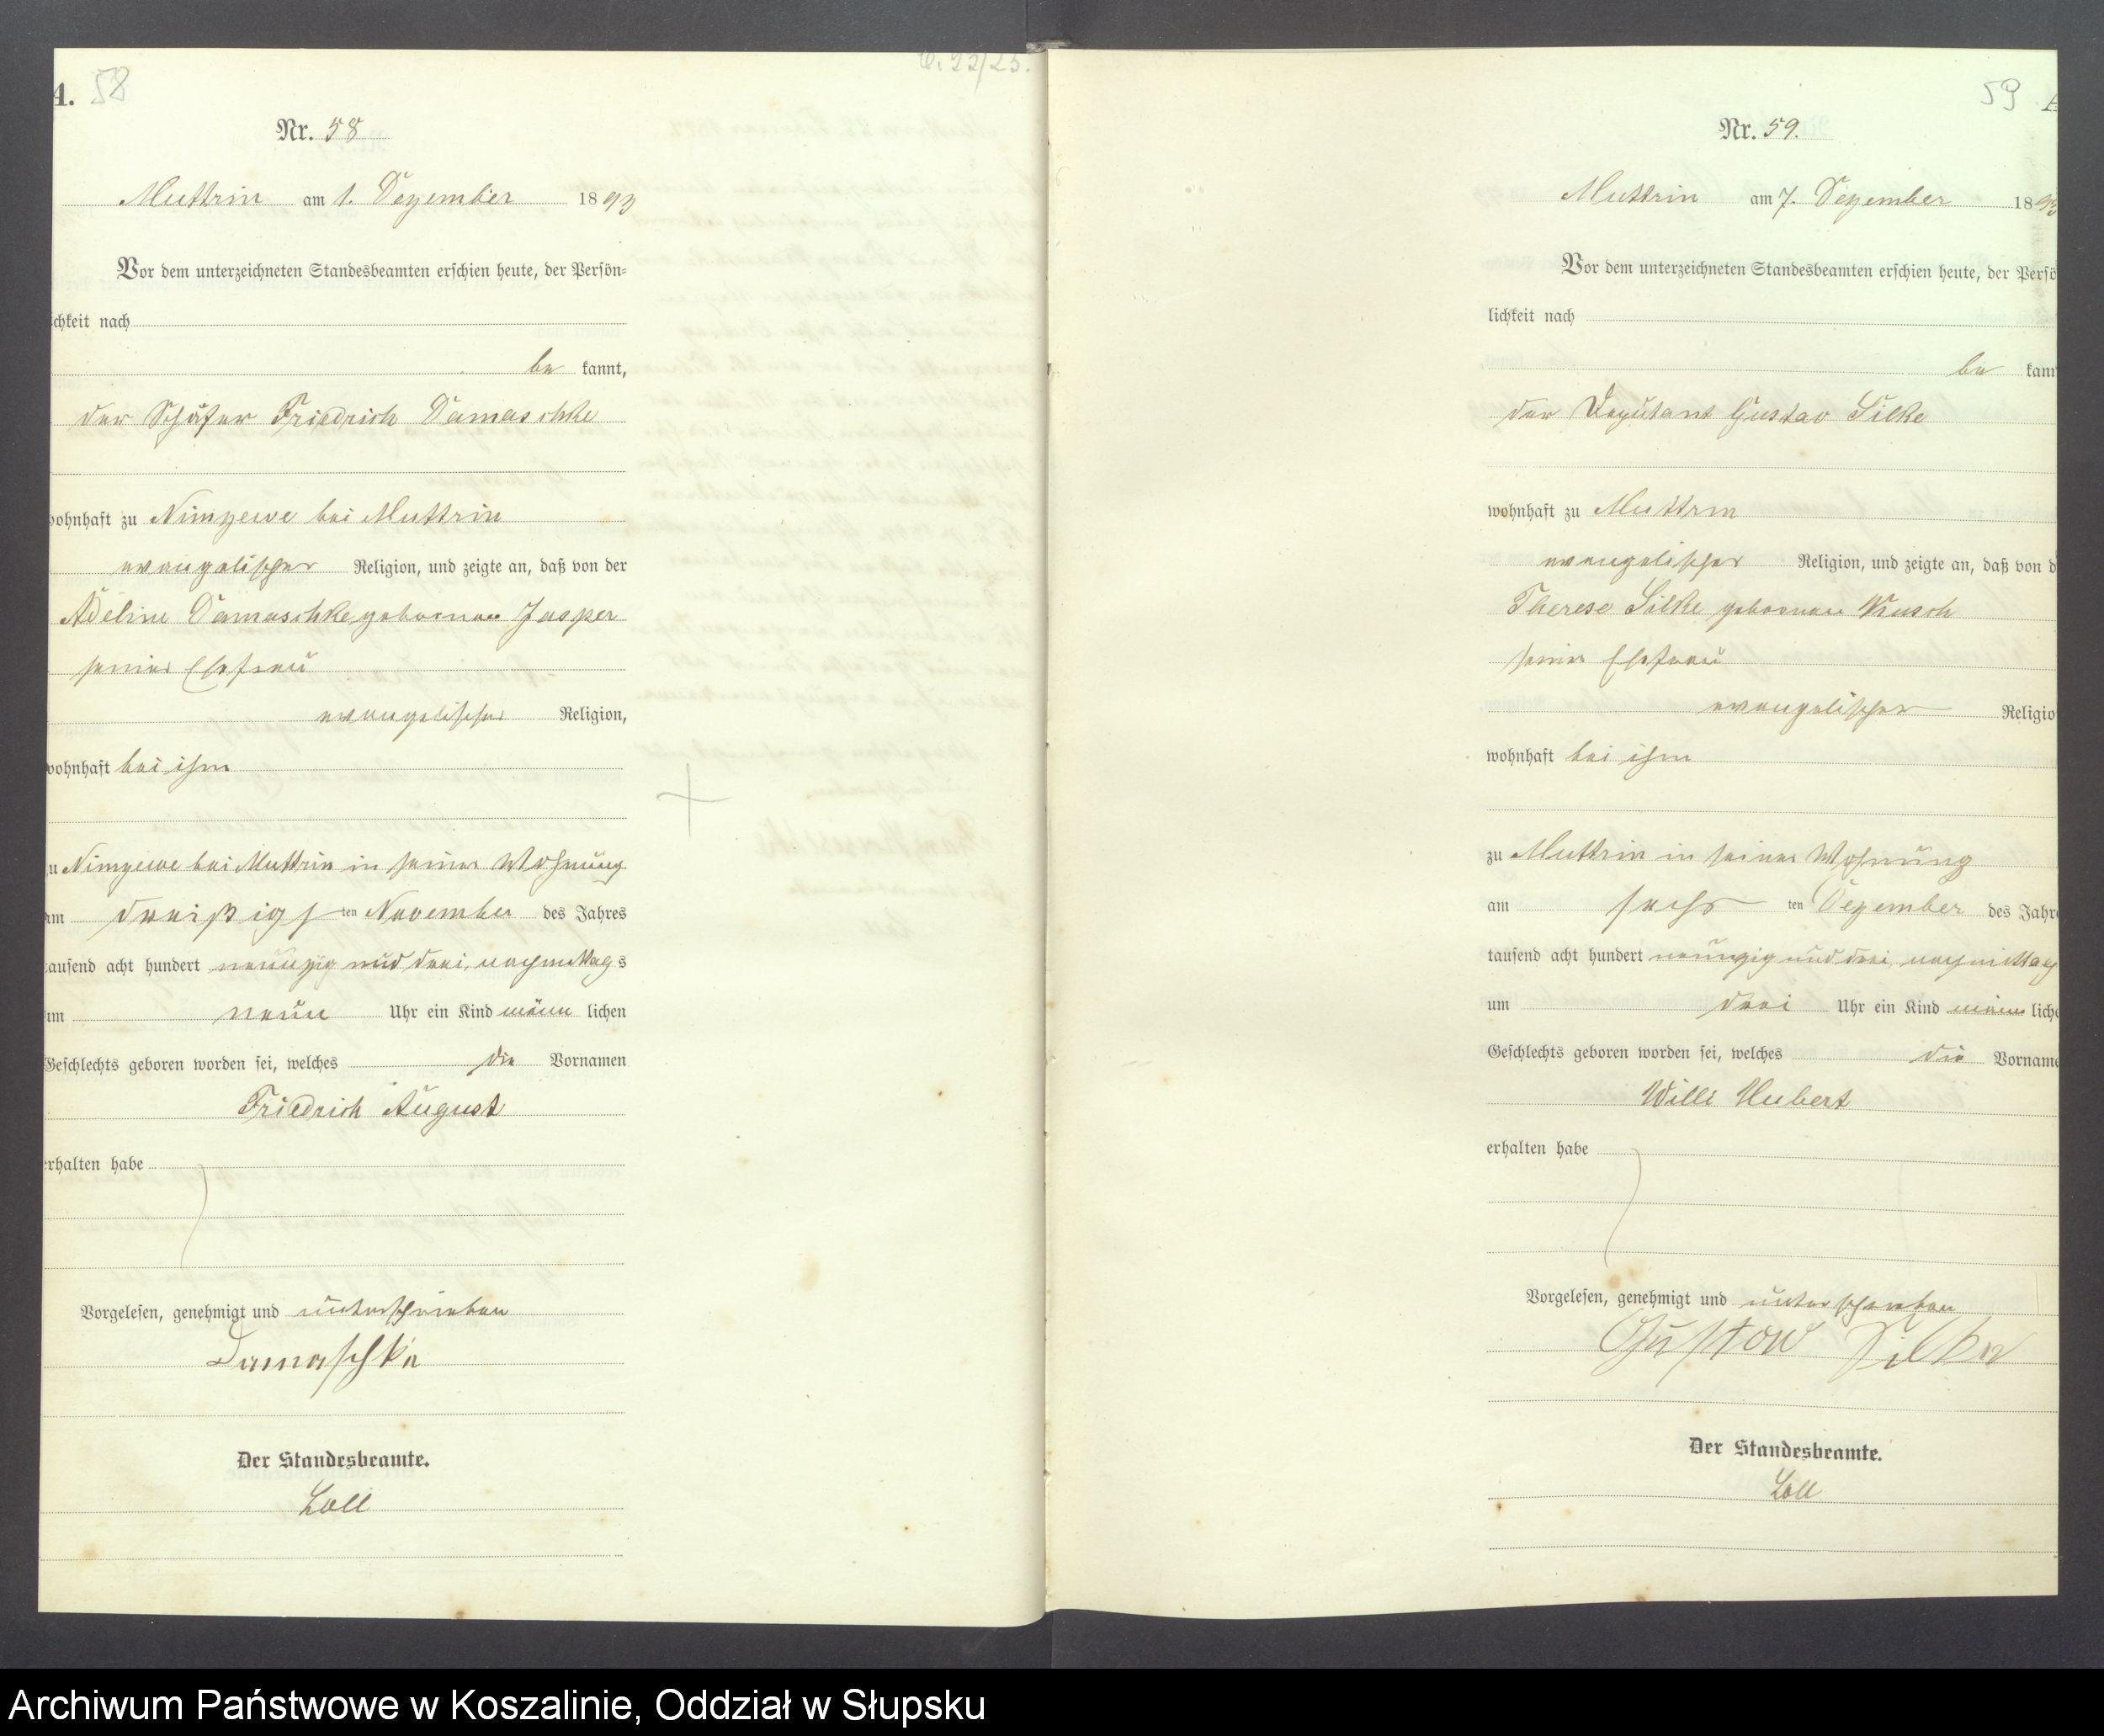 A. 58
Nr. 58
Muttrin am 1. Dezember 1893
Vor dem unterzeichneten Standesbeamten erschien heute, der Persön-
chkeit nach
be kannt,
der Schäfer Friedrich Damaschke
wohnhaft zu Nimzewe bei Muttrin
evangelischer Religion, und zeigte an, daß von der
Adeline Damaschke geborenen Jasper
seiner Ehefrau
evangelischer Religion,
wohnhaft bei ihm
zu Nimzewe bei Muttrin in seiner Wohnung
am dreißigsten November des Jahres
tausend acht hundert neunzig und drei, nachmittags
um neun Uhr ein Kind männlichen
Geschlechts geboren worden sei, welches die Vornamen
Friedrich August
erhalten habe
Vorgelesen, genehmigt und unterschrieben
Damaschke
Der Standesbeamte.
Loll
59
Nr. 59.
Muttrin am 7. Dezember 1893
Vor dem unterzeichneten Standesbeamten erschien heute, der Persö
lichkeit nach
be kann
der Deputant Gustav Silke
wohnhaft zu Muttrin
evangelischer Religion, und zeigte an, daß von d
Therese Silke geborenen Kusch
seiner Ehefrau
evangelischer Religio
wohnhaft bei ihm
zu Muttrin in seiner Wohnung
am sechsten Dezember des Jahre
tausend acht hundert neunzig und drei, nachmittags
um drei Uhr ein Kind männliche
Geschlechts geboren worden sei, welches die Vorname
Willi Hubert
erhalten habe
Vorgelesen, genehmigt und unterschrieben
Gustaw Silke
Der Standesbeamte.
Loll
Archiwum Państwowe w Koszalinie, Oddział w Słupsku